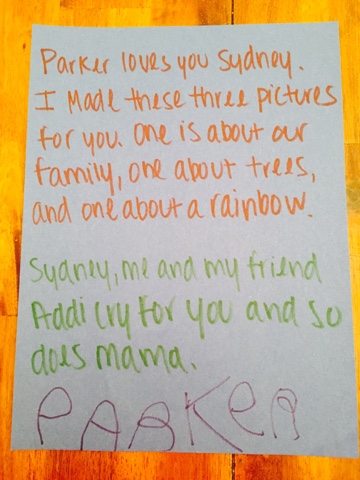 Parker loves you Sydney.
I Made these three pictures
for you. One is about our
family, one about trees,
and one about a rainbow.
Sydney, me and my friend
Addi cry for you and so
does mama.
PARKeR